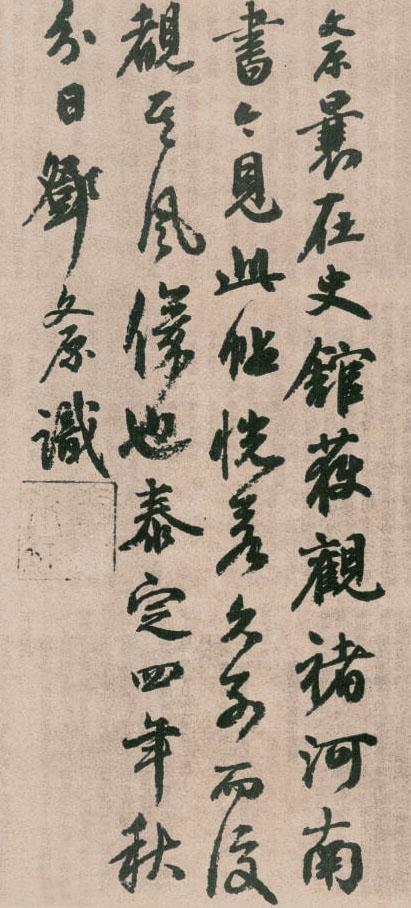 文原曩在史館獲觀褚河南
書今見此帖恍若久別而復
覩其風儀也泰定四年秋
分日鄧文原識